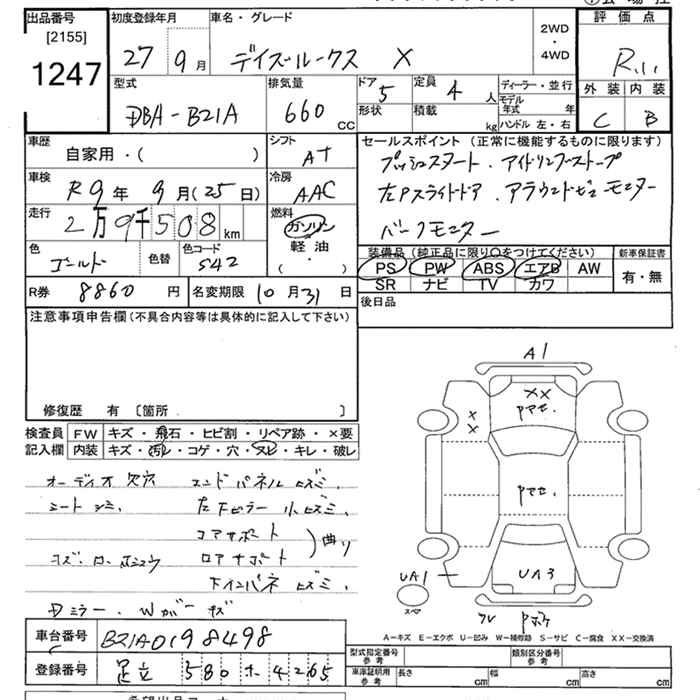 出品番号
[2155]
1247
初度登録年月
27 9月
車名・グレード
デイズルークス X
2WD
・
4WD
評価点
R
外装 内装
C B
型式
DBA-B21A
排気量
660 CC
ドア 5
形状
定員 4 人
積載 kg
ディーラー・並行
モデル年式 年
ハンドル 左・右
車歴
自家用・( )
シフト
AT
セールスポイント (正常に機能するものに限ります)
プッシュスタート. アイドリングストップ
左Pスライドドア. アラウンドビューモニター
バークモニター
車検
R9年 9月(25日)
冷房
AAC
走行
2万9千508 km
燃料
ガソリン
軽油
( ・ )
色
ゴールド
色替
色コード
S42
装備品 (純正品に限り○をつけてください)
PS PW ABS エアB AW
SR ナビ TV カワ
新車保証書
有・無
R券 8860 円
名変期限 10月31日
後日品
注意事項申告欄 (不具合内容等は具体的に記入して下さい)
修復歴 有 〔箇所 〕
検査員 FW キズ・飛石・ヒビ割・リペア跡・×要
記入欄 内装 キズ・汚レ・コゲ・穴・スレ・キレ・破レ
オーディオ欠穴 エンドパネルヒズミ.
シートシミ. 左下ピラー小ヒズミ.
コアサポート
ロアサポート
)曲り
下インパネヒズミ.
Dミラー. Wカバーキズ
A1
XX
アマセ.
X
X
アマセ.
UA3
UA1
スペア
A-キズ E-エクボ U-凹み W-補修跡 S-サビ C-腐食 XX-交換済
車台番号 B21A0198498
登録番号 足立 580 ホ 4265
型式指定番号
参考
類別区分番号
参考
車庫証明用
参考
長さ cm 幅 cm 高さ cm